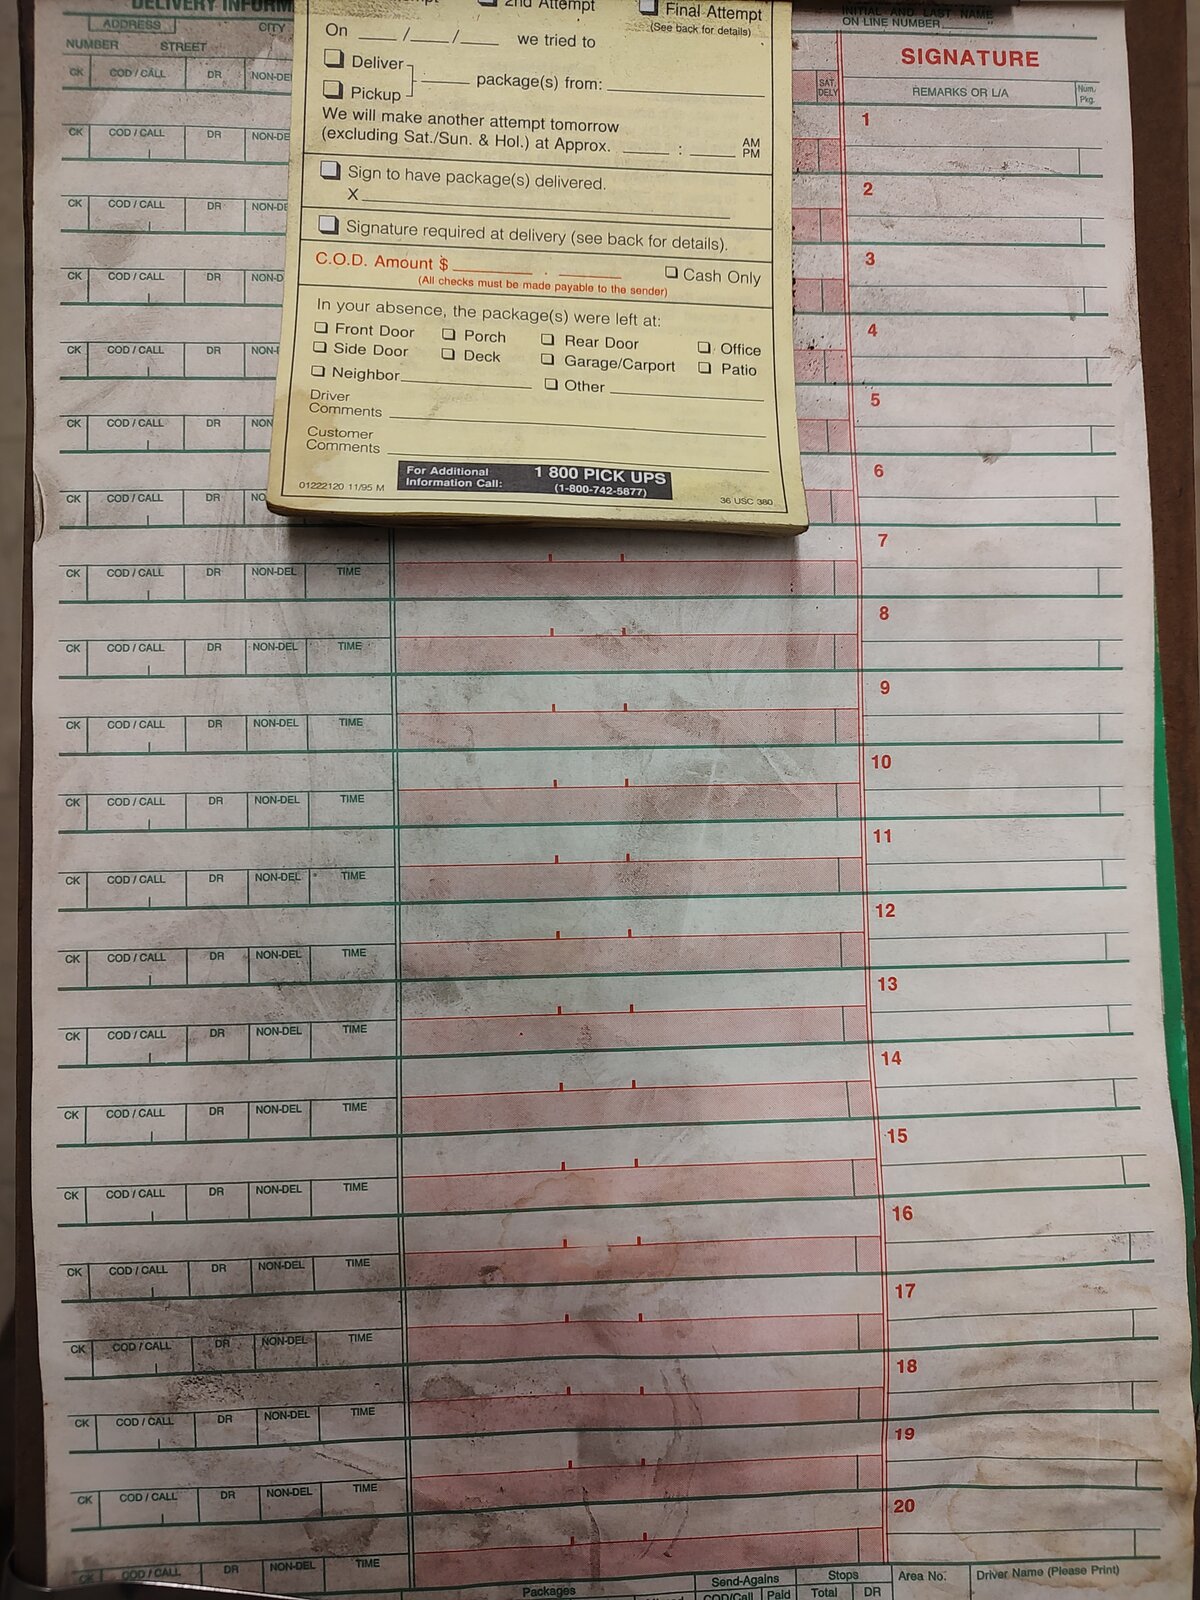 DELIVERY INFORM
ADDRESS
CITY
NUMBER STREET
2nd Attempt
Final Attempt
(See back for details)
On ___ /___ /___ we tried to
Deliver
Pickup
package(s) from:
We will make another attempt tomorrow
(excluding Sat./Sun. & Hol.) at Approx. ____ : ____ AM
PM
Sign to have package(s) delivered.
X
Signature required at delivery (see back for details).
C.O.D. Amount $ ______ . ____ Cash Only
(All checks must be made payable to the sender)
In your absence, the package(s) were left at:
Front Door Porch Rear Door Office
Side Door Deck Garage/Carport Patio
Neighbor Other
Driver
Comments
Customer
Comments
For Additional
Information Call:
1 800 PICK UPS
(1-800-742-5877)
01222120 11/95 M
36 USC 380
INITIAL AND LAST NAME
ON LINE NUMBER
SIGNATURE
SAT.
DELY
REMARKS OR L/A
Num.
Pkg.
CK COD / CALL DR NON-DE
1
CK COD / CALL DR NON-DE
2
CK COD / CALL DR NON-DE
3
CK COD / CALL DR NON-D
4
CK COD / CALL DR NON-
5
CK COD / CALL DR NON
6
CK COD / CALL DR NO
7
CK COD / CALL DR NON-DEL TIME
8
CK COD / CALL DR NON-DEL TIME
9
CK COD / CALL DR NON-DEL TIME
10
CK COD / CALL DR NON-DEL TIME
11
CK COD / CALL DR NON-DEL TIME
12
CK COD / CALL DR NON-DEL TIME
13
CK COD / CALL DR NON-DEL TIME
14
CK COD / CALL DR NON-DEL TIME
15
CK COD / CALL DR NON-DEL TIME
16
CK COD / CALL DR NON-DEL TIME
17
CK COD / CALL DR NON-DEL TIME
18
CK COD / CALL DR NON-DEL TIME
19
CK COD / CALL DR NON-DEL TIME
20
CK COD / CALL DR NON-DEL TIME
Packages
Send-Agains
COD/Call Paid
Stops
Total DR
Area No.
Driver Name (Please Print)